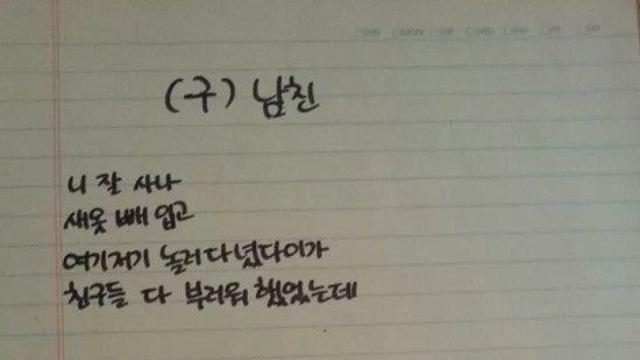 (구) 남친
니 잘 사나
새옷 빼 입고
여기저기 놀러다녔다이가
친구들 다 부러워 했었는데